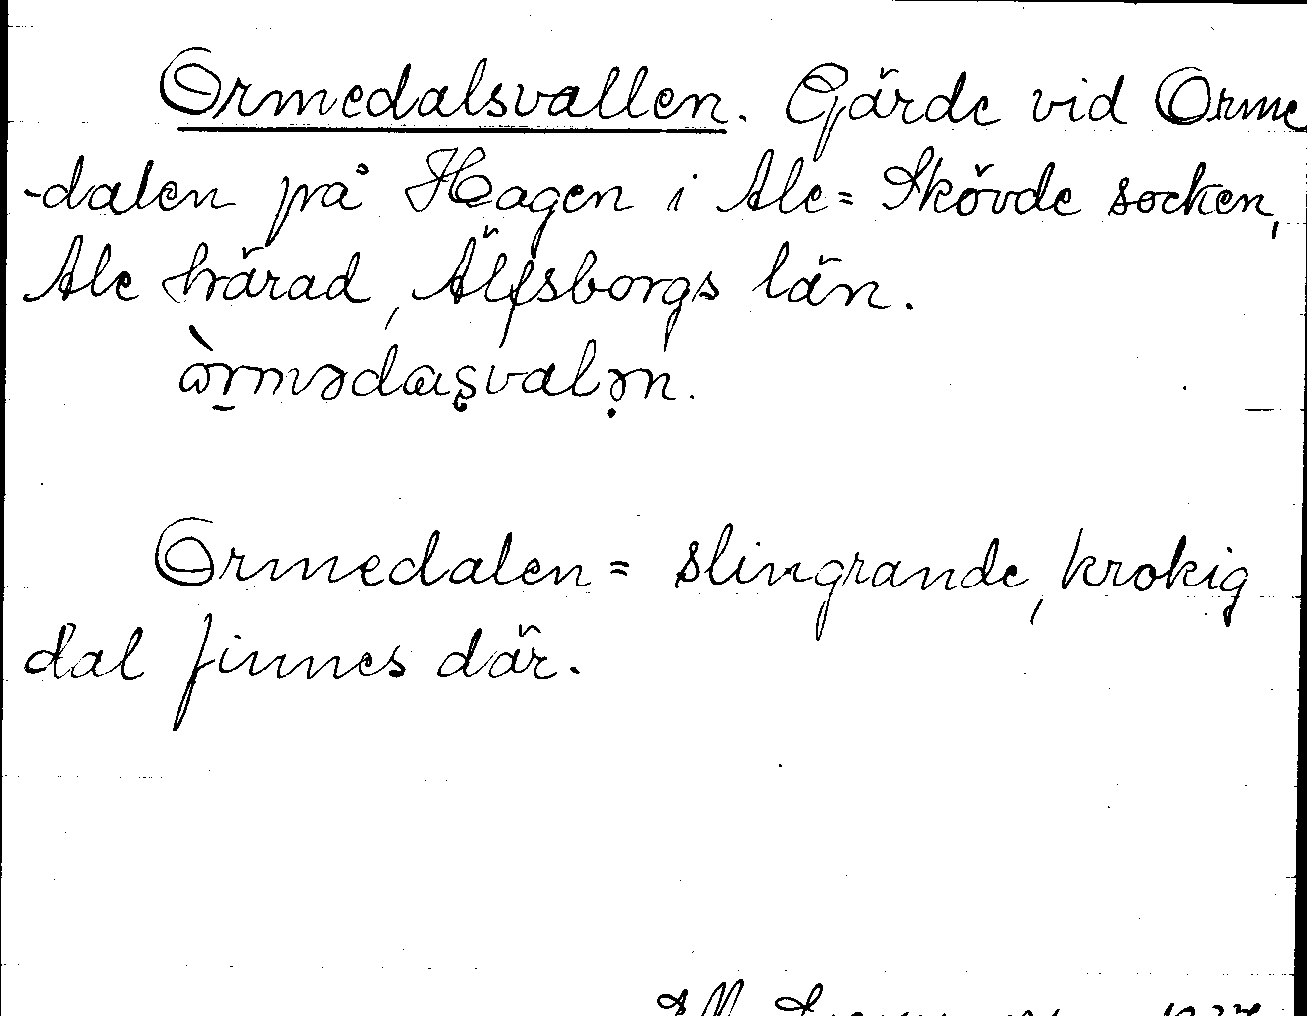 Ormedalsvallen. Gärde vid Orme
-dalen på Hagen i Ale=Skövde socken,
Ale härad, Älfsborgs län.
ὼrmədaʂvalə̣n.
Ormedalen = slingrande, krokig
dal finnes där.